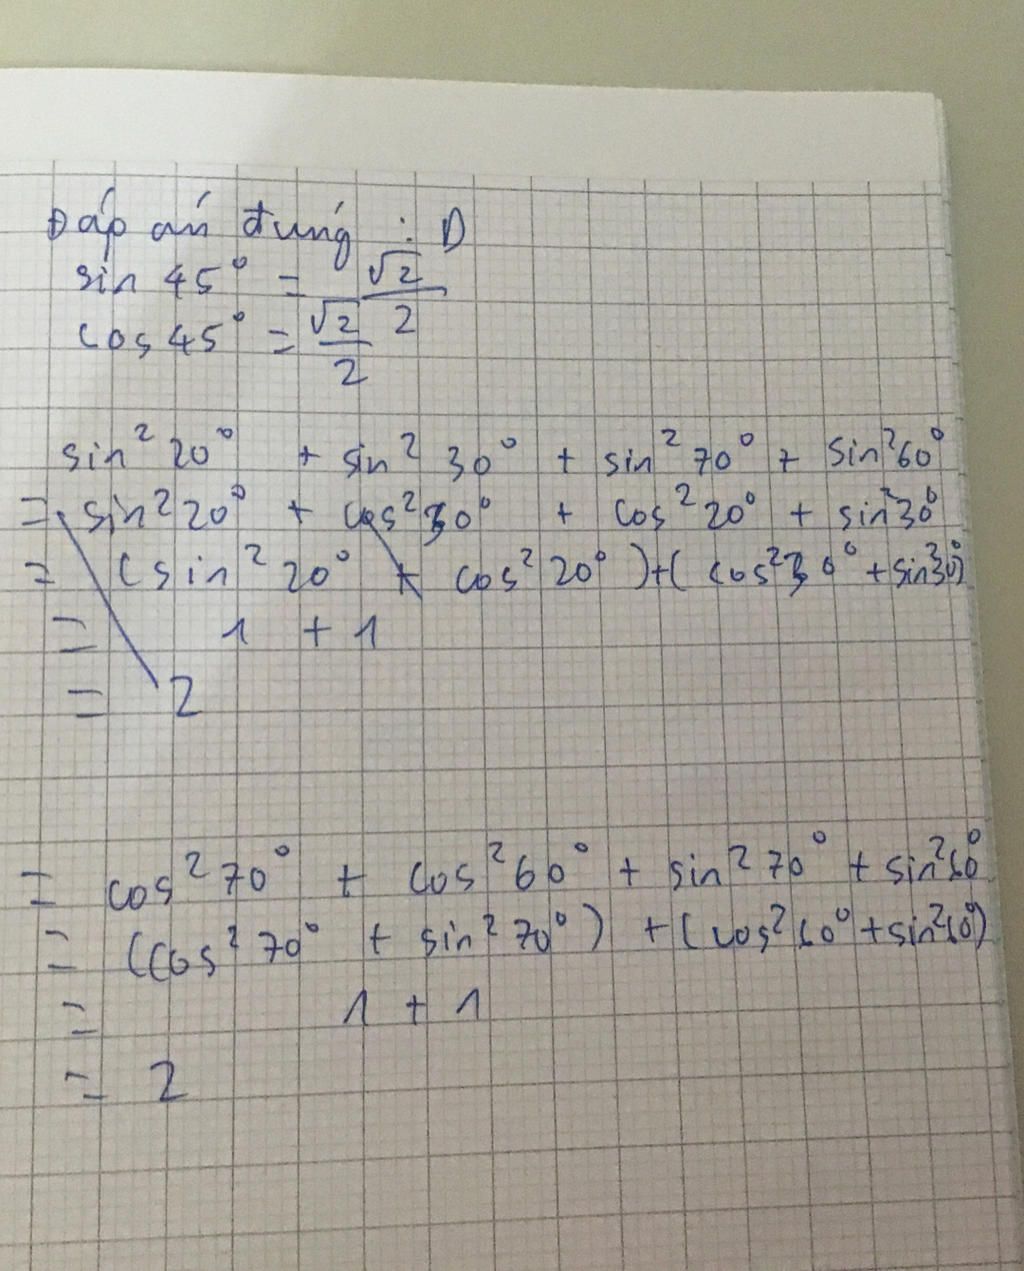 Đáp án đúng : D
sin 45° = √2/2
cos 45° = √2/2
sin² 20° + sin² 30° + sin² 70° + sin² 60°
= sin² 20° + cos² 30° + cos² 20° + sin² 30°
= (sin² 20° + cos² 20°) + (cos² 30° + sin² 30°)
= 1 + 1
= 2
= cos² 70° + cos² 60° + sin² 70° + sin² 60°
= (cos² 70° + sin² 70°) + (cos² 60° + sin² 60°)
= 1 + 1
= 2